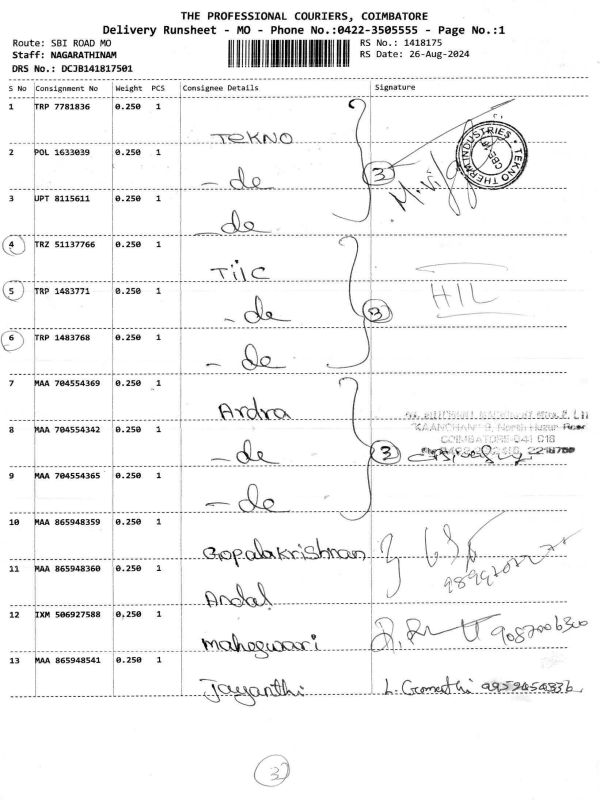 THE PROFESSIONAL COURIERS, COIMBATORE
Delivery Runsheet - MO - Phone No.:0422-3505555 - Page No.:1
Route: SBI ROAD MO
RS No.: 1418175
Staff: NAGARATHINAM
RS Date: 26-Aug-2024
DRS No.: DCJB141817501
S No Consignment No Weight PCS Consignee Details Signature
1 TRP 7781836 0.250 1
TEKNO
2 POL 1633039 0.250 1
- do
3
TEKNO THERM INDUSTRIES
CBE-45
3 UPT 8115611 0.250 1
- do
4 TRZ 51137766 0.250 1
TiiC
5 TRP 1483771 0.250 1
- do
3
HIL
6 TRP 1483768 0.250 1
- do
7 MAA 704554369 0.250 1
Ardra
8 MAA 704554342 0.250 1
- do
3
"KAANCHAN" 9, North Huzur Road
COIMBATORE-641 018
9 MAA 704554365 0.250 1
- do
10 MAA 865948359 0.250 1
Gopalakrishnan
11 MAA 865948360 0.250 1
Andal
12 IXM 506927588 0.250 1
Maheswari
9087006300
13 MAA 865948541 0.250 1
Jayanthi
L. Gomathi
3